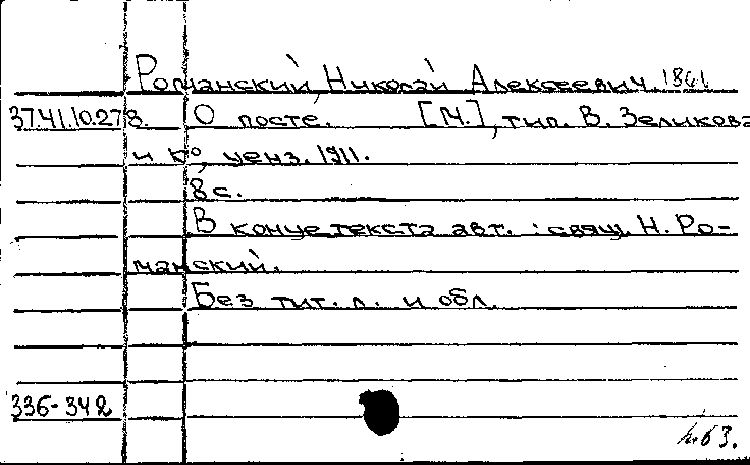 Романский, Николай Алексеевич. 1861
37.41.10.278. О посте. [М.], тип. В. Зеликова
и К°, ценз. 1911.
8 с.
В конце текста авт.: свящ. Н. Ро-
манский.
Без тит. л. и обл.
336-342
63.